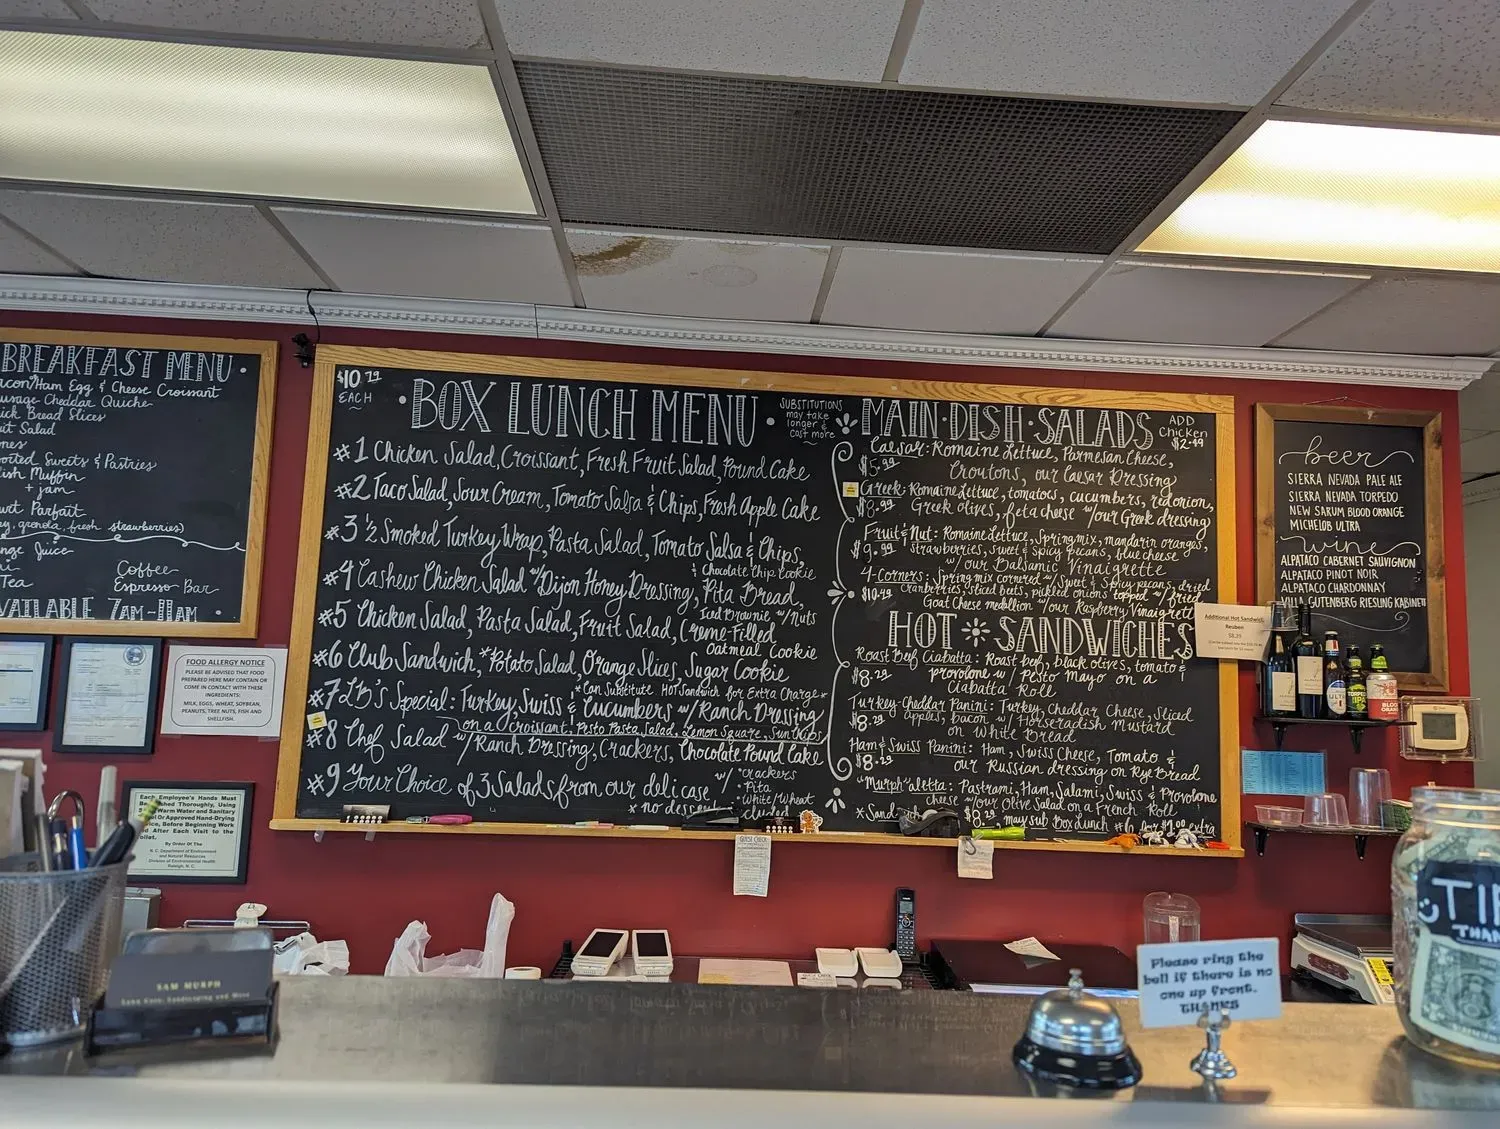 BREAKFAST MENU
Ham Egg & Cheese Croissant
Cheddar Quiche
Bread Slices
Salad
Sweets & Pastries
Muffin
+ jam
Parfait
granola, fresh strawberries)
Juice
Tea
Coffee
Espresso Bar
7AM-11AM
FOOD ALLERGY NOTICE
PLEASE BE ADVISED THAT FOOD
PREPARED HERE MAY CONTAIN OR
COME IN CONTACT WITH THESE
INGREDIENTS:
MILK, EGGS, WHEAT, SOYBEAN,
PEANUTS, TREE NUTS, FISH AND
SHELLFISH.
Each Employee's Hands Must
Washed Thoroughly, Using
Warm Water and Sanitary
Or Approved Hand-Drying
Before Beginning Work
After Each Visit to the
By Order Of The
N. C. Department of Environment
and Natural Resources
Division of Environmental Health
Raleigh, N. C.
$10.79
EACH
BOX LUNCH MENU
SUBSTITUTIONS
may take
longer &
cost more
#1 Chicken Salad, Croissant, Fresh Fruit Salad, Pound Cake
#2 Taco Salad, Sour Cream, Tomato Salsa & Chips, Fresh Apple Cake
#3 ½ Smoked Turkey Wrap, Pasta Salad, Tomato Salsa & Chips,
& Chocolate Chip Cookie
#4 Cashew Chicken Salad w/Dijon Honey Dressing, Pita Bread,
Iced Brownie w/Nuts
#5 Chicken Salad, Pasta Salad, Fruit Salad, Creme-Filled
Oatmeal Cookie
#6 Club Sandwich, *Potato Salad, Orange Slices, Sugar Cookie
*Can Substitute Hot Sandwich for Extra Charge*
#7 LB's Special: Turkey, Swiss & Cucumbers w/Ranch Dressing
on a croissant, Pesto Pasta Salad, Lemon Square, Sun Chips
#8 Chef Salad w/Ranch Dressing, Crackers, Chocolate Pound Cake
#9 Your Choice of 3 Salads from our deli case w/ *crackers
*Pita
*White/Wheat
* no dessert
MAIN·DISH·SALADS
ADD
Chicken
$2.49
Caesar: Romaine Lettuce, Parmesan Cheese,
$5.99 Croutons, our Caesar Dressing
Greek: Romaine Lettuce, tomatoes, cucumbers, red onion,
$8.99 Greek olives, feta cheese w/our Greek dressing
Fruit & Nut: Romaine Lettuce, Spring mix, mandarin oranges,
$9.99 strawberries, sweet & spicy pecans, blue cheese
w/our Balsamic Vinaigrette
4-Corners: Spring mix cornered w/Sweet & Spicy pecans, dried
$10.49 cranberries, sliced beets, pickled onions topped w/
Goat Cheese medallion w/our Raspberry Vinaigrette
HOT SANDWICHES
Roast Beef Ciabatta: Roast beef, black olives, tomato &
$8.29 provolone w/ Pesto Mayo on a
Ciabatta Roll
Turkey-Cheddar Panini: Turkey, Cheddar Cheese, Sliced
$8.29 apples, bacon w/Horseradish Mustard
on White Bread
Ham & Swiss Panini: Ham, Swiss Cheese, Tomato &
$8.29 our Russian dressing on Rye Bread
"Murph"aletta: Pastrami, Ham, Salami, Swiss & Provolone
cheese w/our Olive Salad on a French Roll
$8.29 may sub Box Lunch #6 for $1.00 extra
Additional Hot Sandwich:
Reuben
$8.29
beer
SIERRA NEVADA PALE ALE
SIERRA NEVADA TORPEDO
NEW SARUM BLOOD ORANGE
MICHELOB ULTRA
wine
ALPATACO CABERNET SAUVIGNON
ALPATACO PINOT NOIR
ALPATACO CHARDONNAY
VILLA GUTENBERG RIESLING KABINETT
SAM MURPH
Please ring the
bell if there is no
one up front.
THANKS
TIP